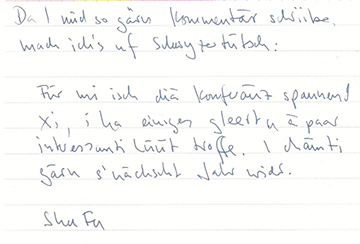 Da I nid so gärn Kommentär schriibe,
mach ich's uf Schwyzertütsch:
Für mi isch diä Konferänz spannend
xi, i ha einiges gleert u ä paar
intressanti Lüüt troffe. I chämti
gärn s'nächscht Jahr wider.